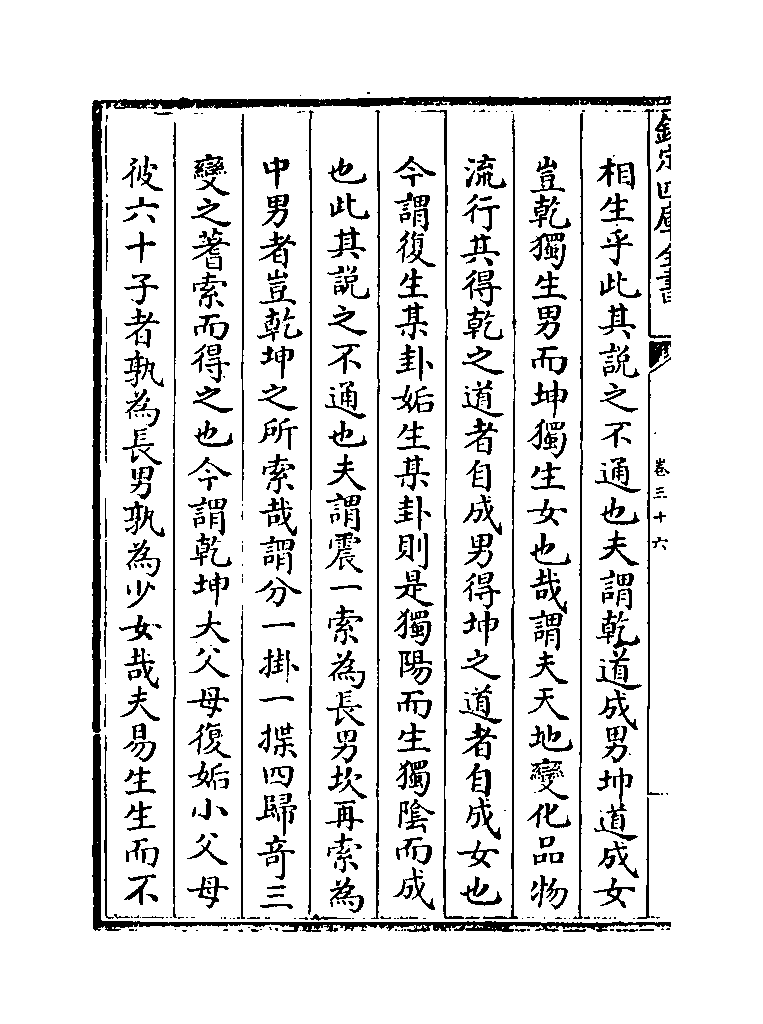 欽定四庫全書
卷三十六
相生乎此其説之不通也夫謂乾道成男坤道成女
豈乾獨生男而坤獨生女也哉謂夫天地變化品物
流行其得乾之道者自成男得坤之道者自成女也
今謂復生某卦姤生某卦則是獨陽而生獨陰而成
也此其説之不通也夫謂震一索為長男坎再索為
中男者豈乾坤之所索哉謂分一掛一揲四歸奇三
變之蓍索而得之也今謂乾坤大父母復姤小父母
彼六十子者孰為長男孰為少女哉夫易生生而不